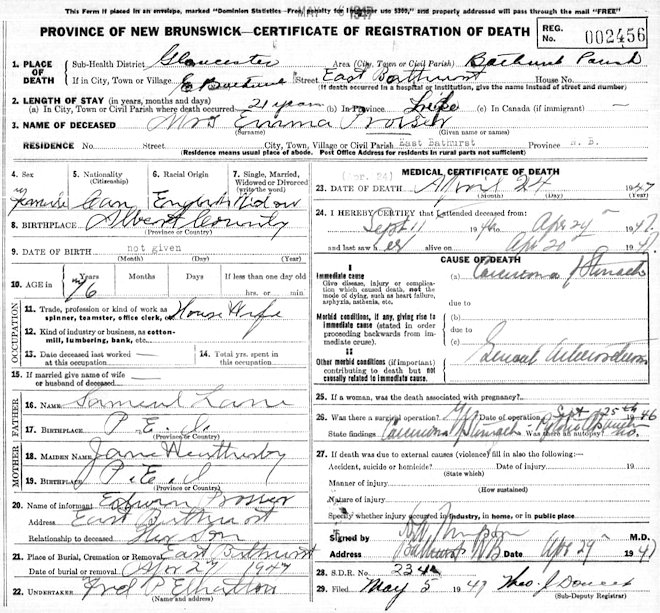 This Form if placed in an envelope, marked "Dominion Statistics—Free, penalty for improper use $300," and properly addressed will pass through the mail "FREE"
MAY 1947
PROVINCE OF NEW BRUNSWICK—CERTIFICATE OF REGISTRATION OF DEATH
REG. No. 002456
1. PLACE OF DEATH
Sub-Health District Gloucester Area (City, Town or Civil Parish) Bathurst Parish
If in City, Town or Village E Bathurst Street East Bathurst House No.
(If death occurred in a hospital or institution, give the name instead of street and number)
2. LENGTH OF STAY (in years, months and days)
(a) In City, Town or Civil Parish where death occurred 21 years (b) In Province Life (c) In Canada (if immigrant) —
3. NAME OF DECEASED Mrs Emma Prosser
(Surname) (Given name or names)
RESIDENCE No. Street City, Town, Village or Civil Parish East Bathurst Province N. B.
(Residence means usual place of abode. Post Office Address for residents in rural parts not sufficient)
4. Sex
Female
5. Nationality (Citizenship)
Can
6. Racial Origin
English
7. Single, Married, Widowed or Divorced (write the word)
Widow
8. BIRTHPLACE Albert County
(Province or Country)
9. DATE OF BIRTH not given
(Month) (Day) (Year)
10. AGE in Years Months Days If less than one day old
76 hrs. or min.
OCCUPATION
11. Trade, profession or kind of work as spinner, teamster, office clerk, etc. House Wife
12. Kind of industry or business, as cotton-mill, lumbering, bank, etc.
13. Date deceased last worked at this occupation —
14. Total yrs. spent in this occupation
15. If married give name of wife or husband of deceased —
FATHER
16. NAME Samuel Lane
17. BIRTHPLACE P. E. I.
(Province or Country)
MOTHER
18. MAIDEN NAME Jane
19. BIRTHPLACE P. E. I
(Province or Country)
20. Name of informant Edwin Prosser
Address East Bathurst
Relationship to deceased Her Son
21. Place of Burial, Cremation or Removal East Bathurst
Date of burial or removal Apr 27 1947
22. UNDERTAKER Fred P
(Name and address)
MEDICAL CERTIFICATE OF DEATH
(Apr. 24)
23. DATE OF DEATH April 24 1947
(Month) (Day) (Year)
24. I HEREBY CERTIFY that I attended deceased from:
Sept 11 1946 to Apr 24 1947
and last saw her alive on Apr 20 1947
CAUSE OF DEATH
I
Immediate cause
Give disease, injury or complication which caused death, not the mode of dying, such as heart failure, asphyxia, asthenia, etc.
(a) Carcinoma of Stomach
due to
Morbid conditions, if any, giving rise to immediate cause (stated in order proceeding backwards from immediate cause).
(b)
due to
(c)
II
Other morbid conditions (if important) contributing to death but not causally related to immediate cause.
General Arteriosclerosis
25. If a woman, was the death associated with pregnancy?
26. Was there a surgical operation? Yes Date of operation Sept 25th 1946
State findings Carcinoma Stomach - Was there an autopsy? no.
27. If death was due to external causes (violence) fill in also the following:
Accident, suicide or homicide? Date of injury 19
(State which)
Manner of injury
(How sustained)
Nature of injury
Specify whether injury occurred in industry, in home, or in public place
Signed by M.D.
Address Bathurst NB Apr 29 1947
28. S.D.R. No. 234
29. Filed May 5 1947 Theo. J Doucet
(Sub-Deputy Registrar)